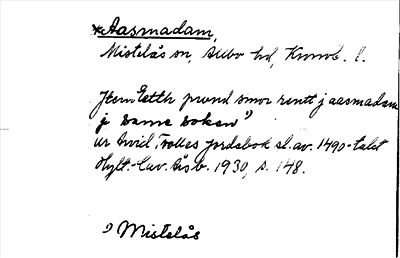 *Aasmadam,
Mistelås sn, Allbo hd, Kronob. l.
Jtem Ietth pund smør rentt j aasmadam
j same soken 1)
ur Arvid Trolles jordabok sl. av. 1490-talet
Hylt.-Cav. Åsb. 1930, s. 148.
1) Mistelås